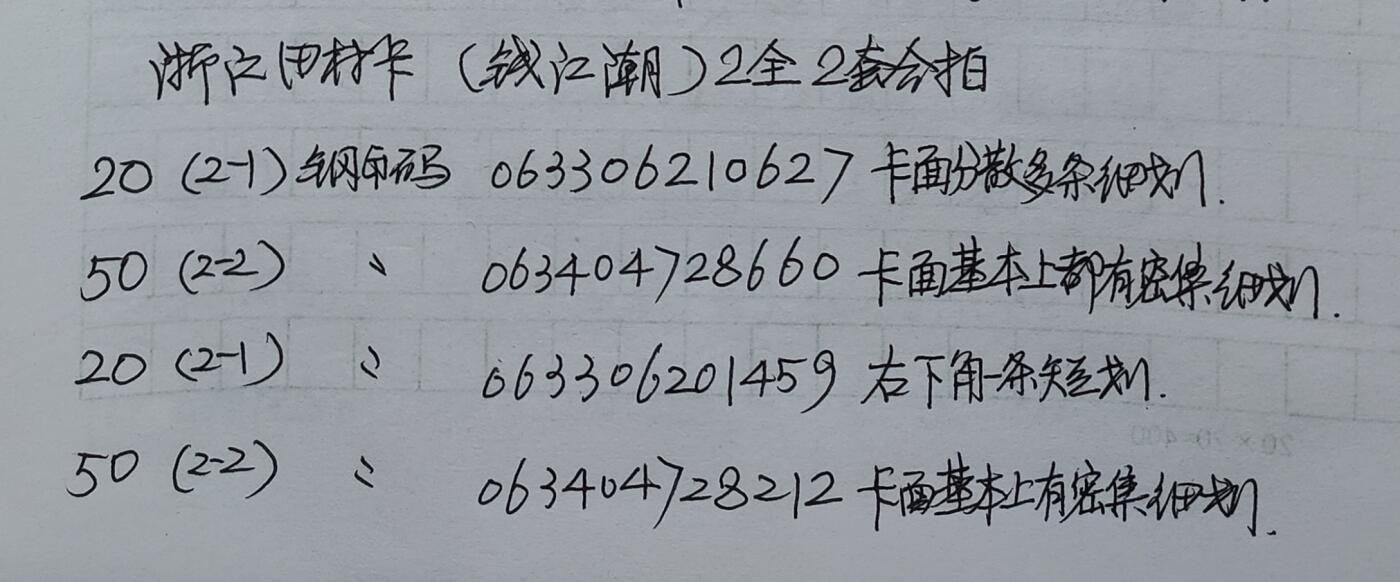 浙江田村卡（钱江潮）2全2套合拍
20（2-1）钢印码 063306210627 卡面分散多条细划.
50（2-2） 〃 063404728660 卡面基本上都有密集细划.
20（2-1） 〃 063306201459 右下角一条短划.
50（2-2） 〃 063404728212 卡面基本上有密集细划.